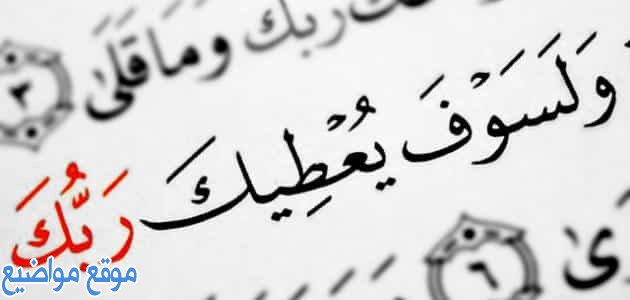 ربك وما قلى ٣
وَلَسَوْفَ يُعْطِيكَ رَبُّكَ
٦
موقع مواضيع